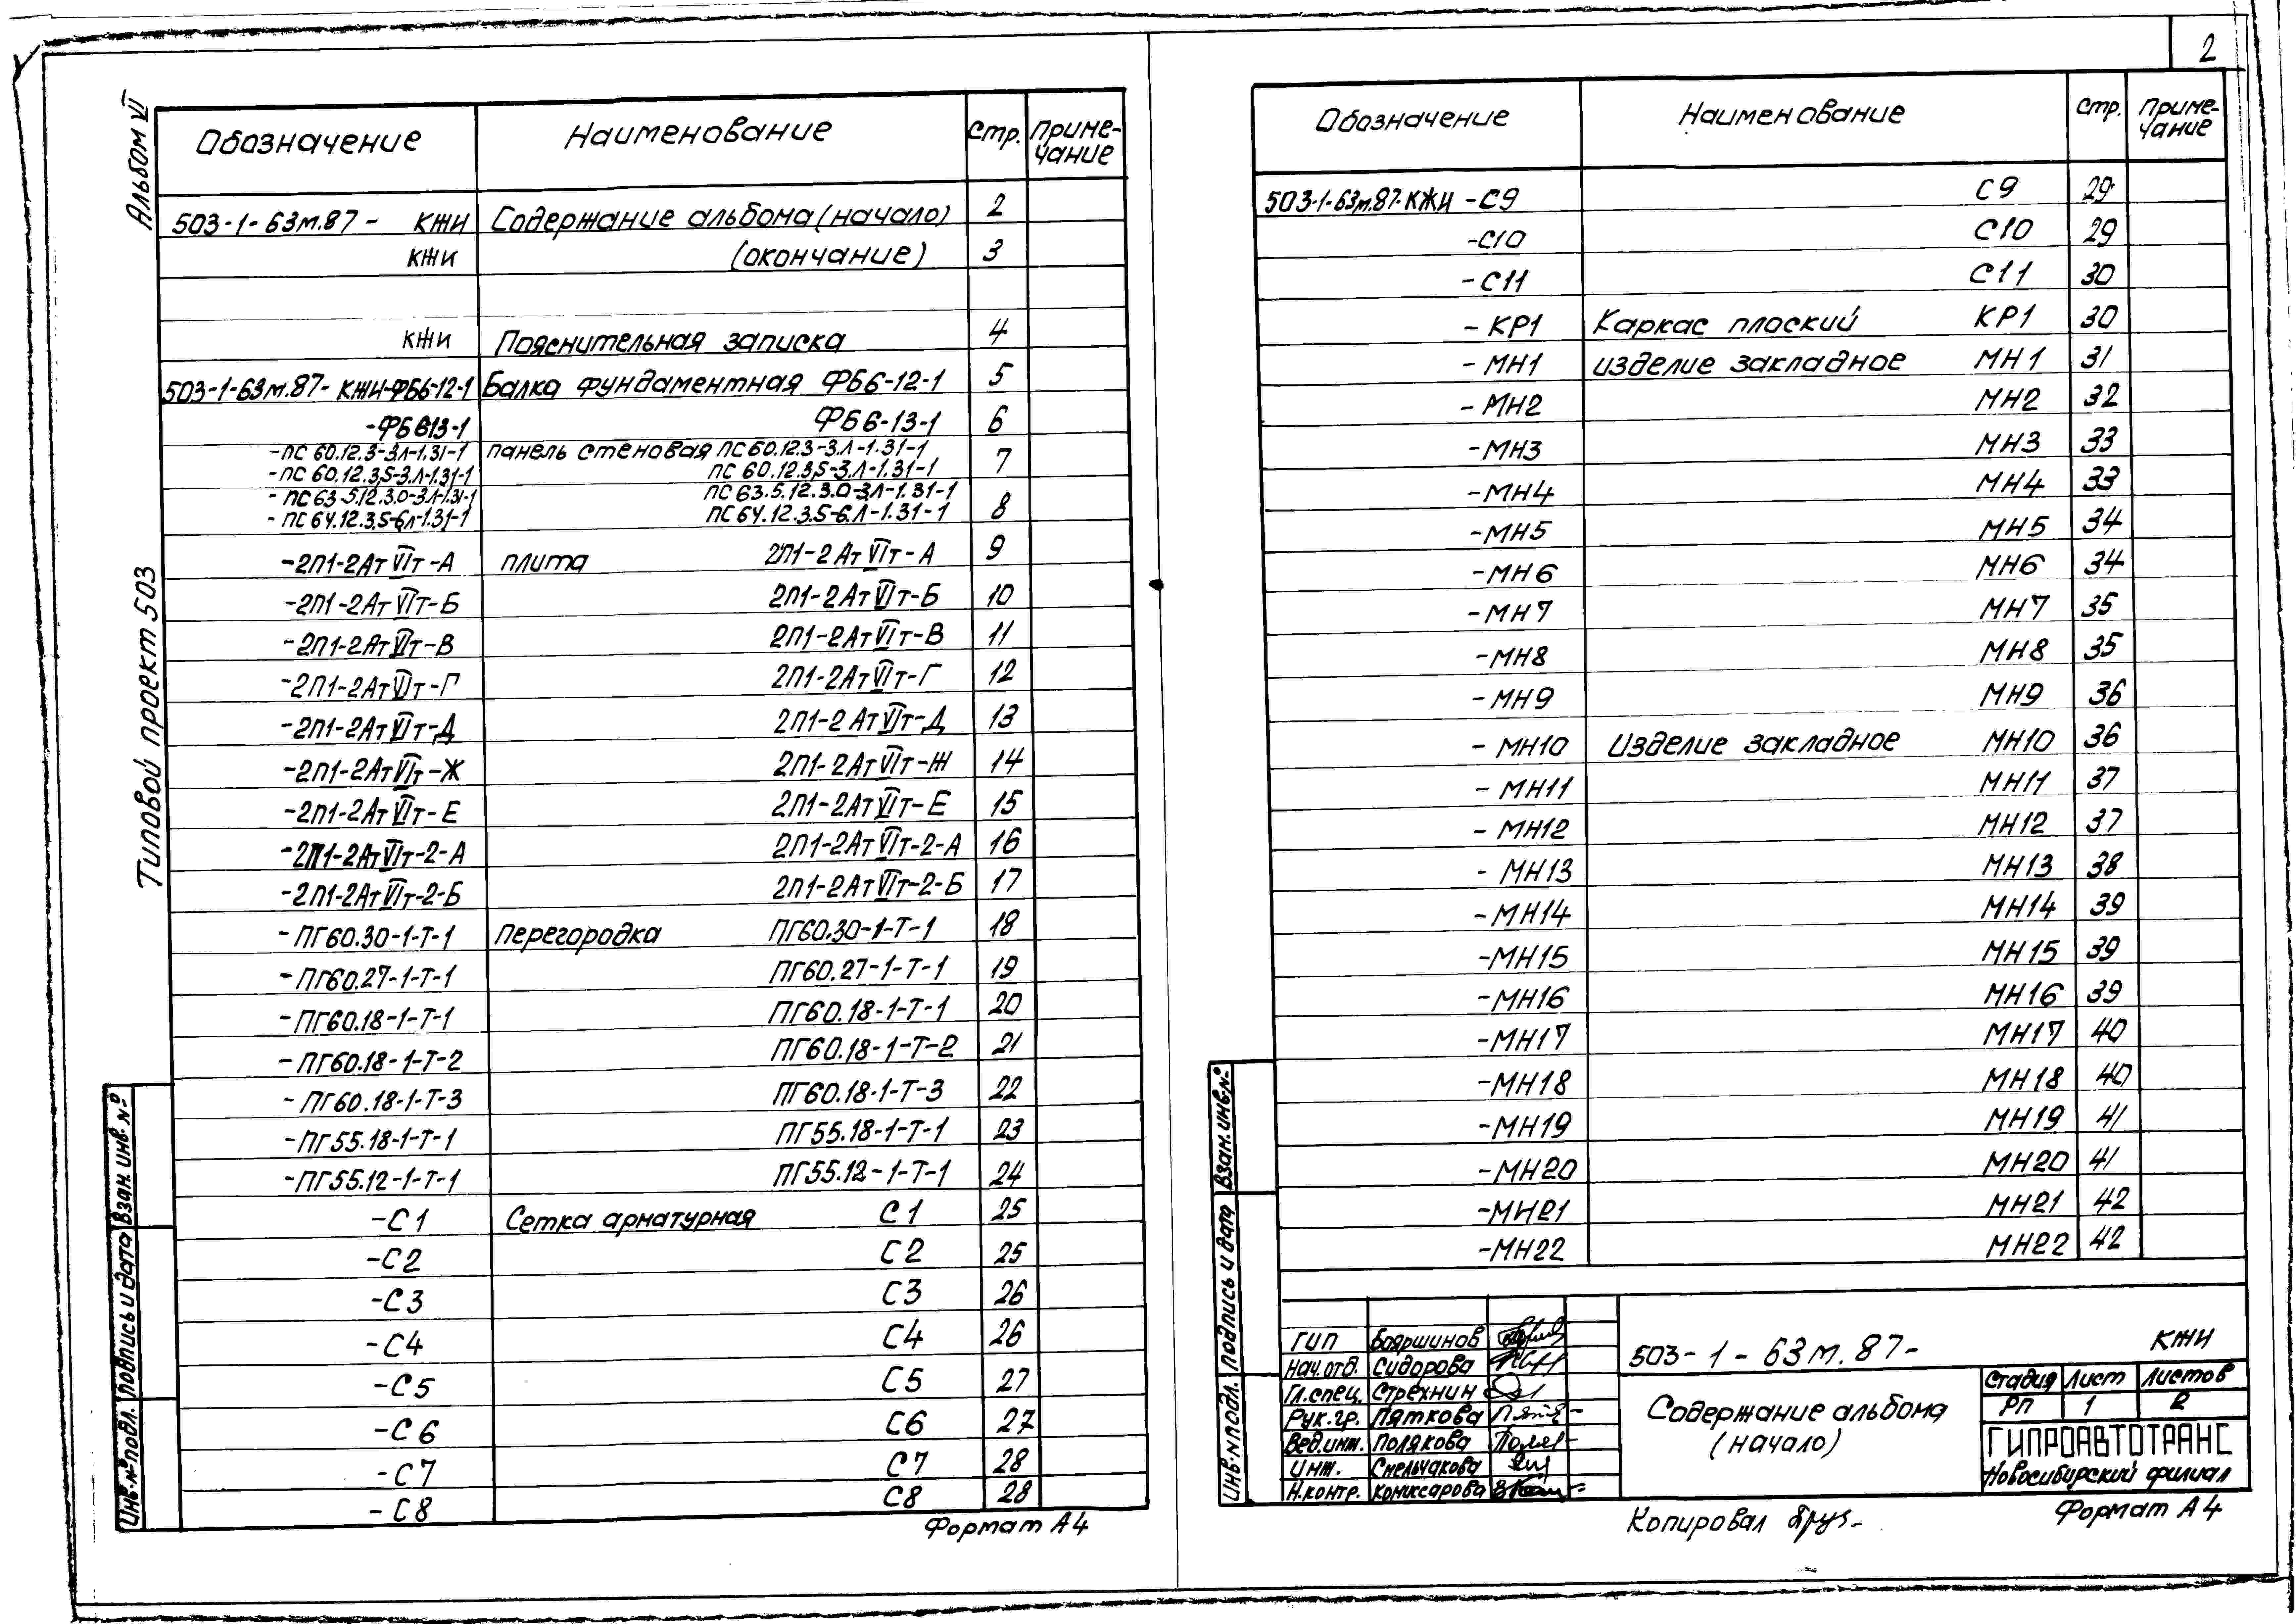 2
Альбом VI
Типовой проект 503
Обозначение Наименование Стр. Приме-чание
503-1-63м.87- КЖИ Содержание альбома (начало) 2
КЖИ (окончание) 3
КЖИ Пояснительная записка 4
503-1-63м.87-КЖИ-ФБ6-12-1 Балка фундаментная ФБ6-12-1 5
-ФБ613-1 ФБ6-13-1 6
-ПС 60.12.3-3.Л-1.31-1 панель стеновая ПС 60.12.3-3.Л-1.31-1
-ПС 60.12.3,5-3.Л-1.31-1 ПС 60.12.3,5-3.Л-1.31-1 7
-ПС 63.5.12.3.0-3.Л-1.31-1 ПС 63.5.12.3.0-3.Л-1.31-1
-ПС 64.12.3.5-6.Л-1.31-1 ПС 64.12.3.5-6.Л-1.31-1 8
-2П1-2АтVIт-А плита 2П1-2АтVIт-А 9
-2П1-2АтVIт-Б 2П1-2АтVIт-Б 10
-2П1-2АтVIт-В 2П1-2АтVIт-В 11
-2П1-2АтVIт-Г 2П1-2АтVIт-Г 12
-2П1-2АтVIт-Д 2П1-2АтVIт-Д 13
-2П1-2АтVIт-Ж 2П1-2АтVIт-Ж 14
-2П1-2АтVIт-Е 2П1-2АтVIт-Е 15
-2П1-2АтVIт-2-А 2П1-2АтVIт-2-А 16
-2П1-2АтVIт-2-Б 2П1-2АтVIт-2-Б 17
-ПГ60.30-1-Т-1 перегородка ПГ60.30-1-Т-1 18
-ПГ60.27-1-Т-1 ПГ60.27-1-Т-1 19
-ПГ60.18-1-Т-1 ПГ60.18-1-Т-1 20
-ПГ60.18-1-Т-2 ПГ60.18-1-Т-2 21
-ПГ60.18-1-Т-3 ПГ60.18-1-Т-3 22
-ПГ55.18-1-Т-1 ПГ55.18-1-Т-1 23
-ПГ55.12-1-Т-1 ПГ55.12-1-Т-1 24
-С1 Сетка арматурная С1 25
-С2 С2 25
-С3 С3 26
-С4 С4 26
-С5 С5 27
-С6 С6 27
-С7 С7 28
-С8 С8 28
Формат А4
Инв.№подл. Подпись и дата Взан. инв. №
Обозначение Наименование Стр. Приме-чание
503-1-63м.87-КЖИ -С9 С9 29
-С10 С10 29
-С11 С11 30
-КР1 Каркас плоский КР1 30
-МН1 изделие закладное МН1 31
-МН2 МН2 32
-МН3 МН3 33
-МН4 МН4 33
-МН5 МН5 34
-МН6 МН6 34
-МН7 МН7 35
-МН8 МН8 35
-МН9 МН9 36
-МН10 Изделие закладное МН10 36
-МН11 МН11 37
-МН12 МН12 37
-МН13 МН13 38
-МН14 МН14 39
-МН15 МН15 39
-МН16 МН16 39
-МН17 МН17 40
-МН18 МН18 40
-МН19 МН19 41
-МН20 МН20 41
-МН21 МН21 42
-МН22 МН22 42
Инв.№подл. Подпись и дата Взан.инв.№
ГИП Бояршинов
Нач.отд. Сидорова
Гл.спец. Стрехнин
Рук.гр. Пяткова
Вед.инж. Полякова
Инж. Смельчакова
Н.контр. Комиссарова
503-1-63м.87- КЖИ
Содержание альбома
(начало)
Стадия Лист Листов
РП 1 2
ГИПРОАВТОТРАНС
Новосибирский филиал
Копировал
Формат А4